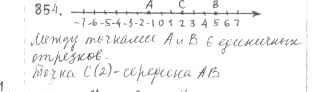 854.
A C B
-7 -6 -5 -4 -3 -2 -1 0 1 2 3 4 5 6 7
Между точками А и В 6 единичных
отрезков.
Точка С(2) - середина АВ